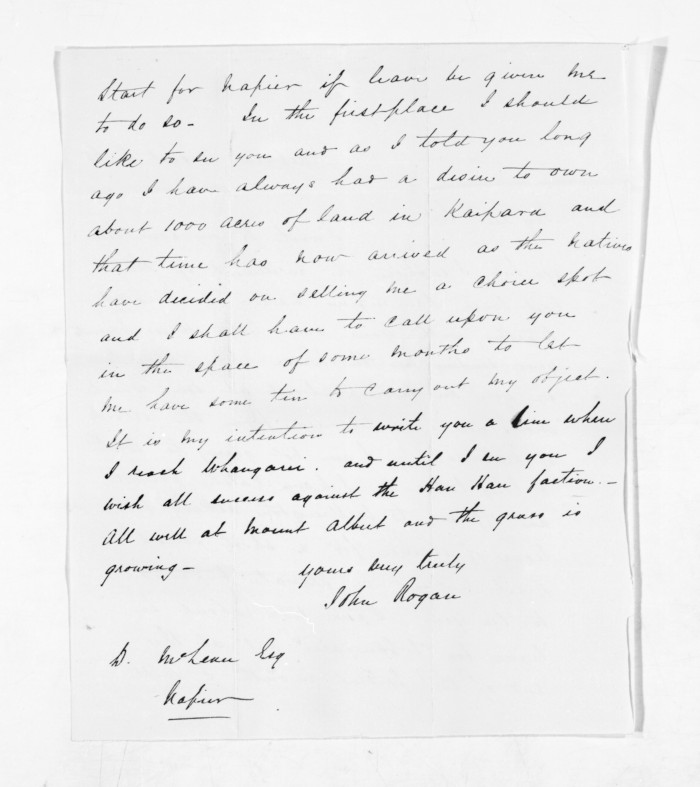 Start for Napier if leave be given me
to do so - In the first place I should
like to see you and as I told you long
ago I have always had a desire to own
about 1000 acres of land in Kaipara and
that time has now arrived as the Natives
have decided on selling me a choice spot
and I shall have to call upon you
in the space of some months to let
me have some tin to carry out my object.
It is my intention to write you a line when
I reach Whangarei. and until I see you I
wish all success against the Hau Hau faction. -
All well at Mount Albert and the grass is
growing -
yours very truly
John Rogan
D. McLean Esq
Napier